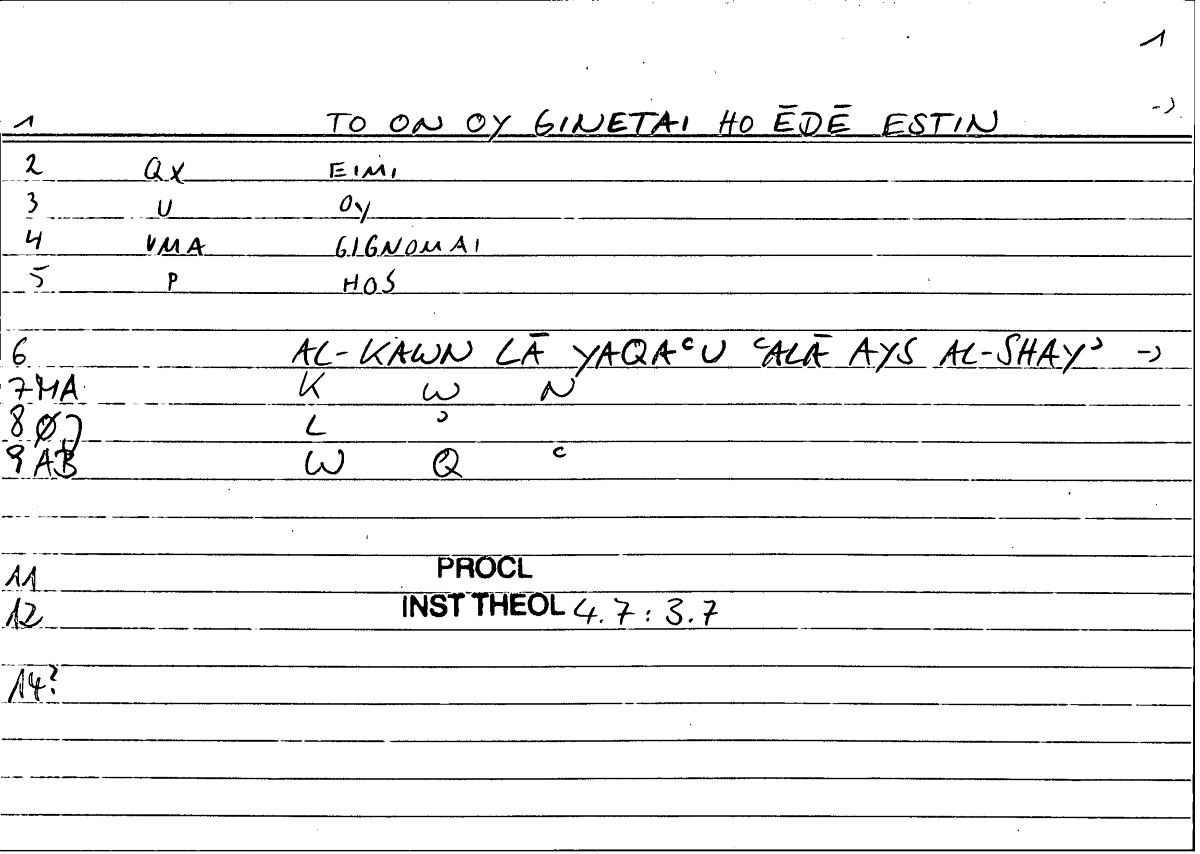 1
1 TO ON OY GINETAI HO ĒDĒ ESTIN -)
2 QX EIMI
3 U OY
4 VMA GIGNOMAI
5 P HOS
6 AL-KAWN LĀ YAQAᶜU ᶜALĀ AYS AL-SHAYʾ -)
7 MA K W N
8 Ø) L ʾ
9 AB W Q ᶜ
11 PROCL
12 INST THEOL 4.7:3.7
14?